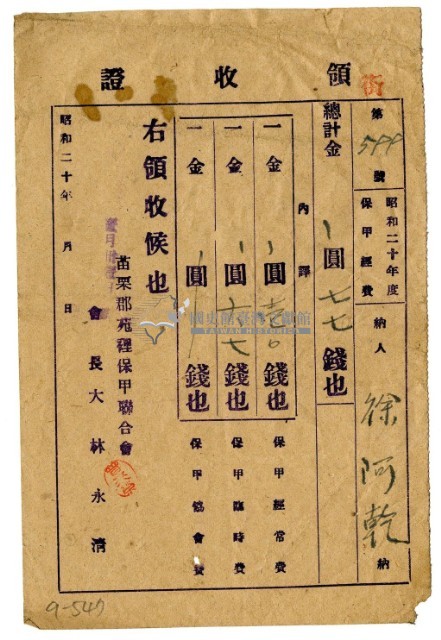 領收證
街
第599號
昭和二十年度
保甲經費
納人
徐阿乾
納
總計金
圓七七錢也
內譯
一金
圓
錢也
保甲經常費
一金
圓
錢也
保甲臨時費
一金
圓
錢也
保甲協會費
右領收候也
昭和二十年 月 日
苗栗郡苑裡保甲聯合會
會長大林永清
國史館臺灣文獻館
TAIWAN HISTORICA
9-547